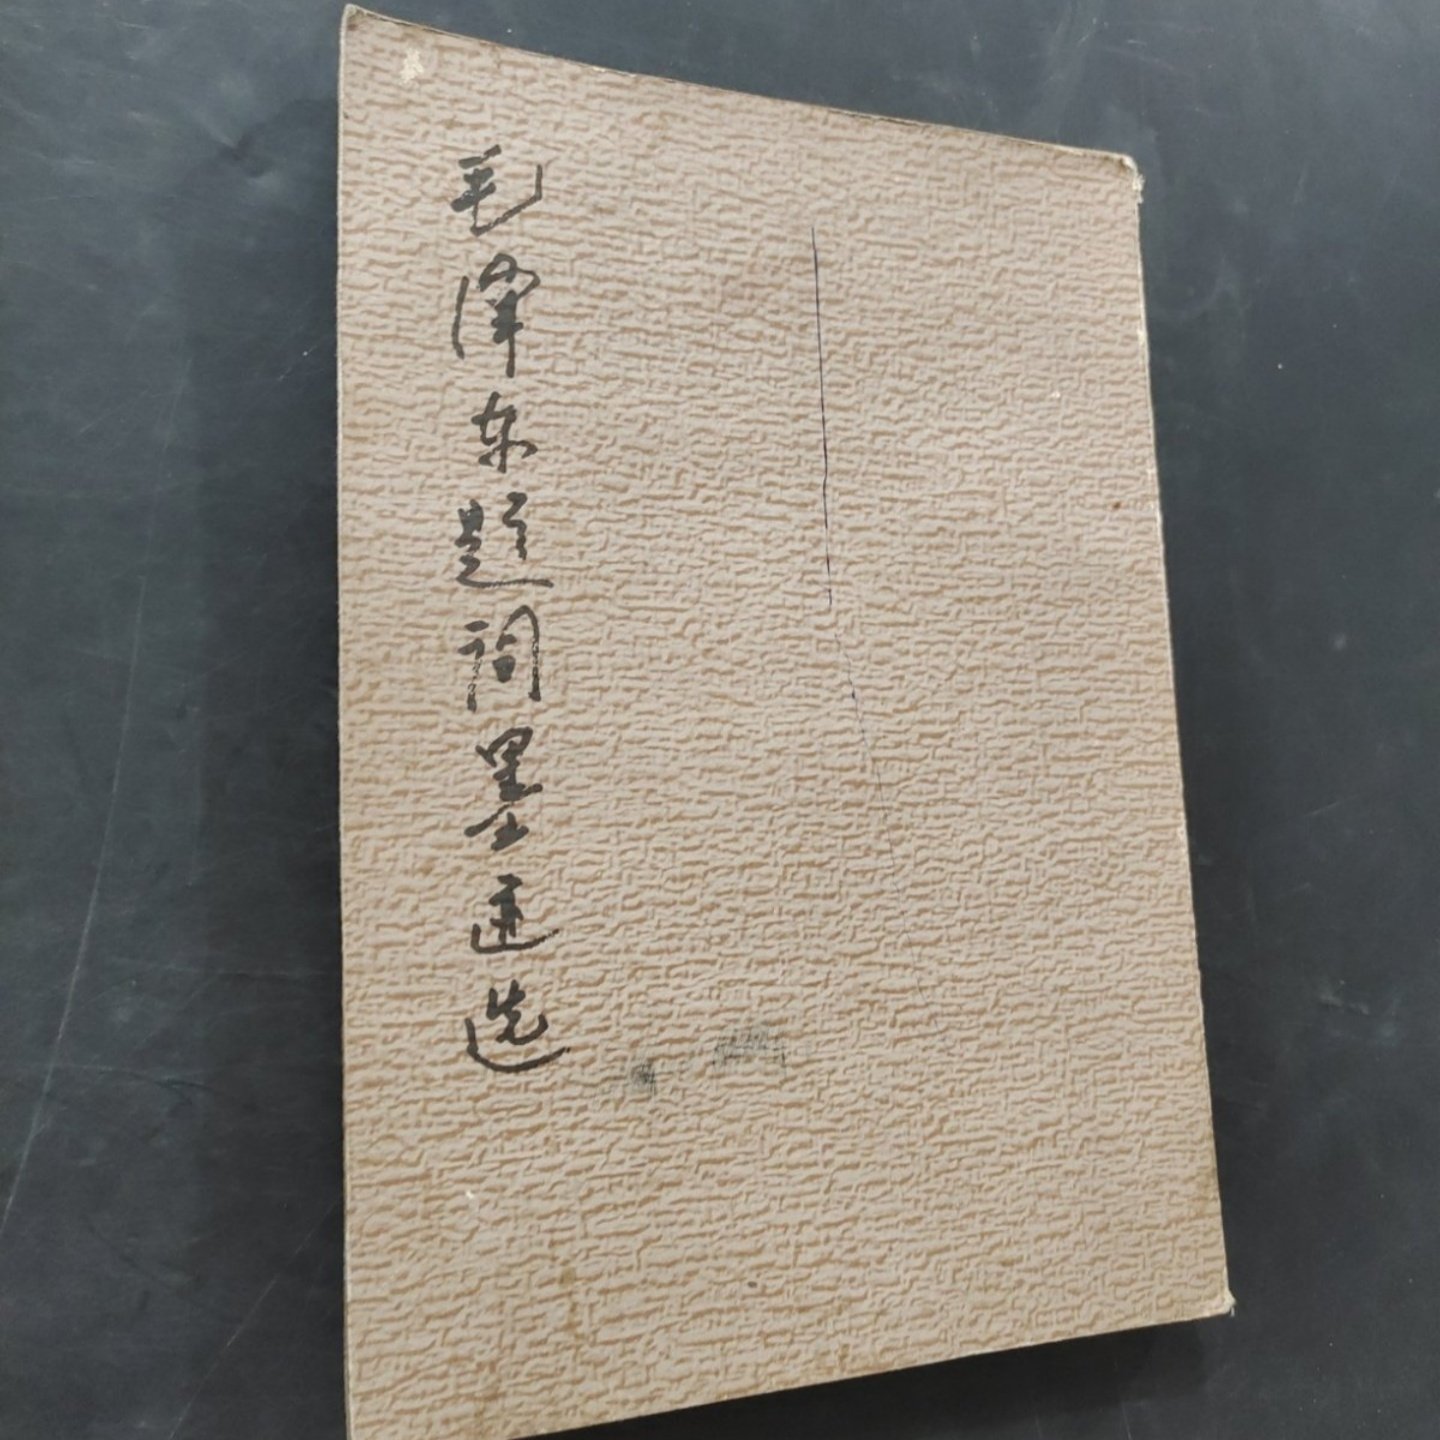 毛泽东题词墨迹选